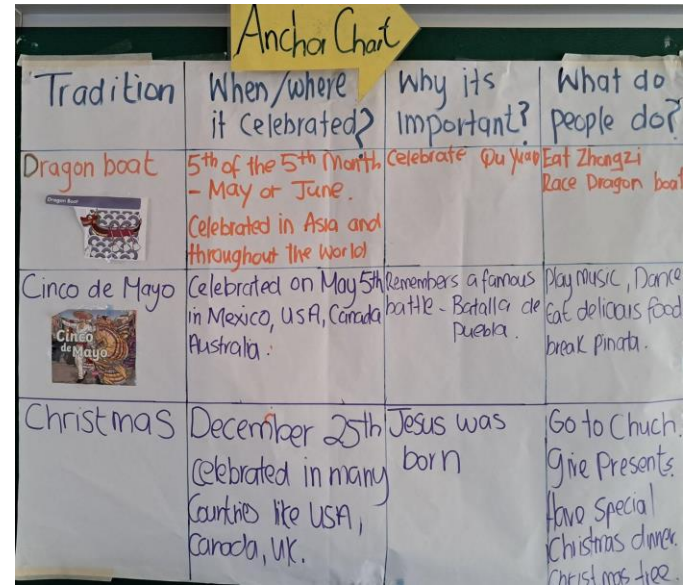 Anchor Chart
Tradition
When/where
it Celebrated?
Why its
Important?
What do
people do?
Dragon boat
Dragon Boat
5th of the 5th Month
- May or June.
Celebrated in Asia and
throughout the World
Celebrate Qu Yuan
Eat Zhongzi
Race Dragon boat
Cinco de Mayo
Cinco
de Mayo
Celebrated on May 5th
in Mexico, USA, Canada
Australia.
Remembers a famous
battle - Batalla de
Puebla.
Play music, Dance
Eat delicious food
break Pinata.
Christmas
December 25th
Celebrated in many
Countries like USA,
Canada, UK.
Jesus was
born
Go to Chuch.
Give Presents.
Have Special
Christmas dinner.
Christmas tree